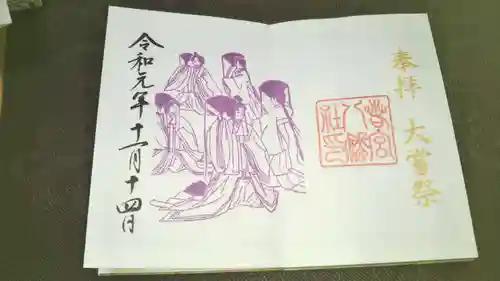 奉拝 大嘗祭
若宮八幡社印
令和元年十一月十四日